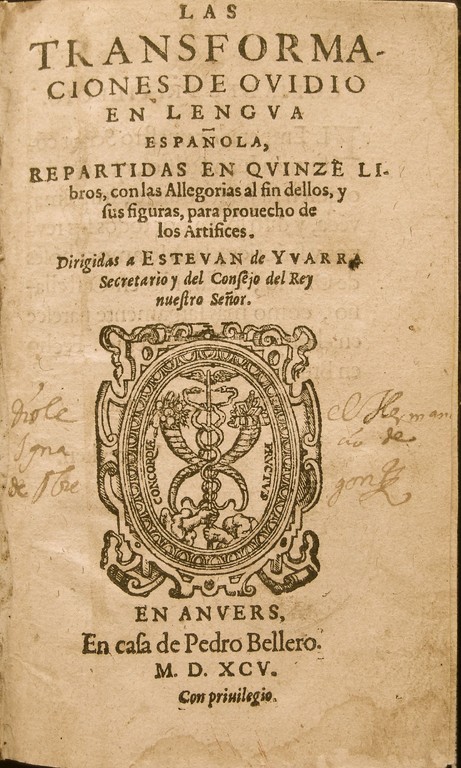 LAS
TRANSFORMA-
CIONES DE OVIDIO
EN LENGVA
ESPAÑOLA,
REPARTIDAS EN QVINZE LI-
bros, con las Allegorias al fin dellos, y
ſus figuras, para prouecho de
los Artifices.
Dirigidas a ESTEVAN de YVARRA
Secretario y del Conſejo del Rey
nueſtro Señor.
CONCORDIÆ FRVCTVS
EN ANVERS,
En caſa de Pedro Bellero.
M. D. XCV.
Con priuilegio.